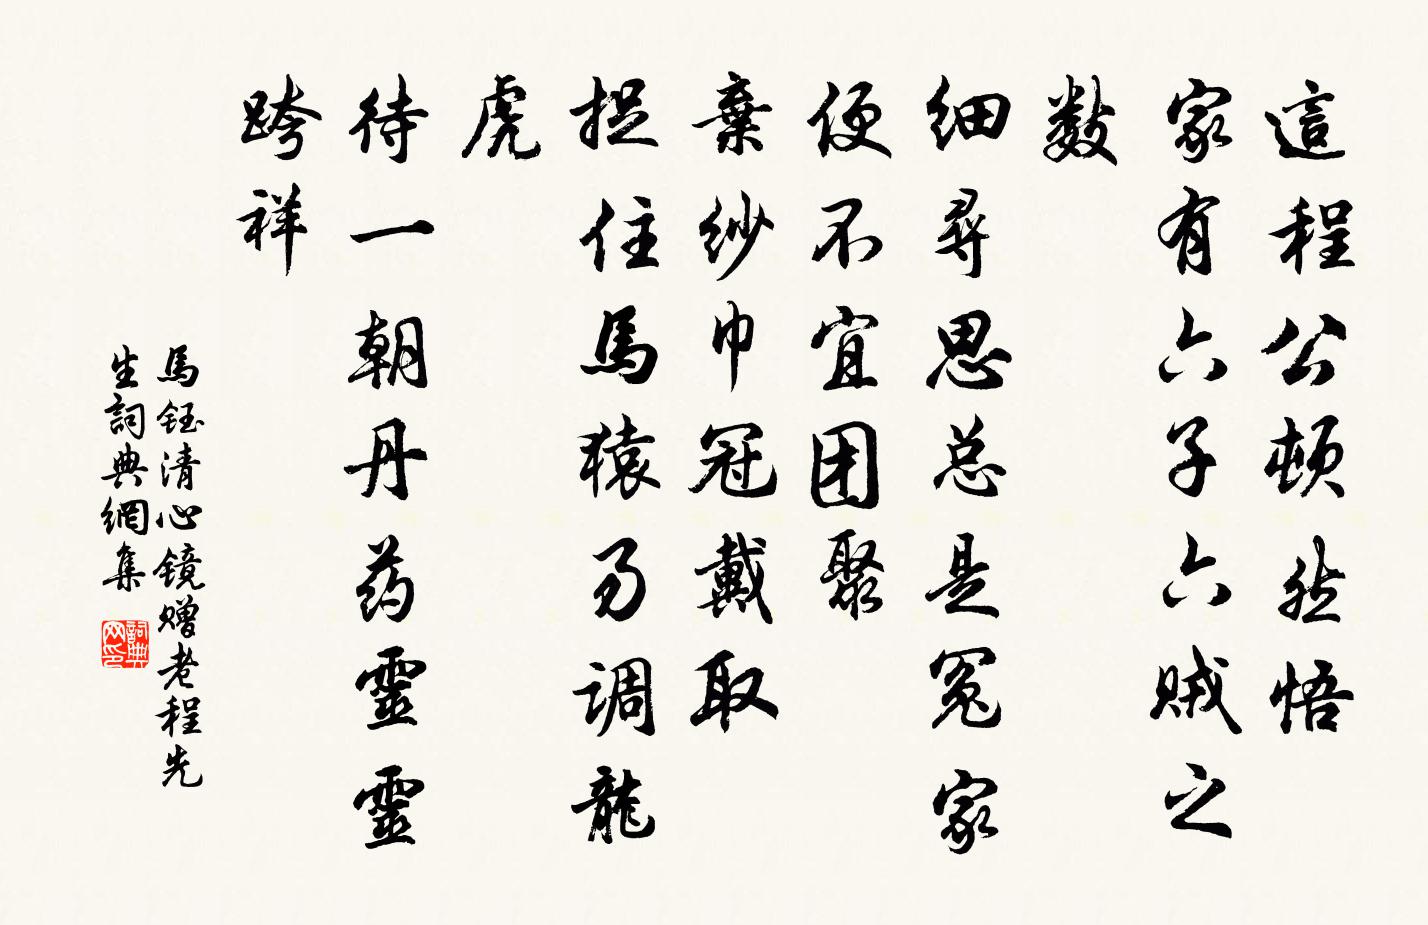 這程公頓然悟
家有六子六贼之
数
细尋思总是冤家
便不宜团聚
棄纱巾冠戴取
捉住馬猿易调龍
虎
待一朝丹药靈靈
跨祥
馬鈺清心镜赠老程先
生詞典網集
詞典
网印